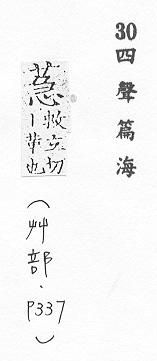 30四聲篇海
救立切
丨草也
（艸部．P337）